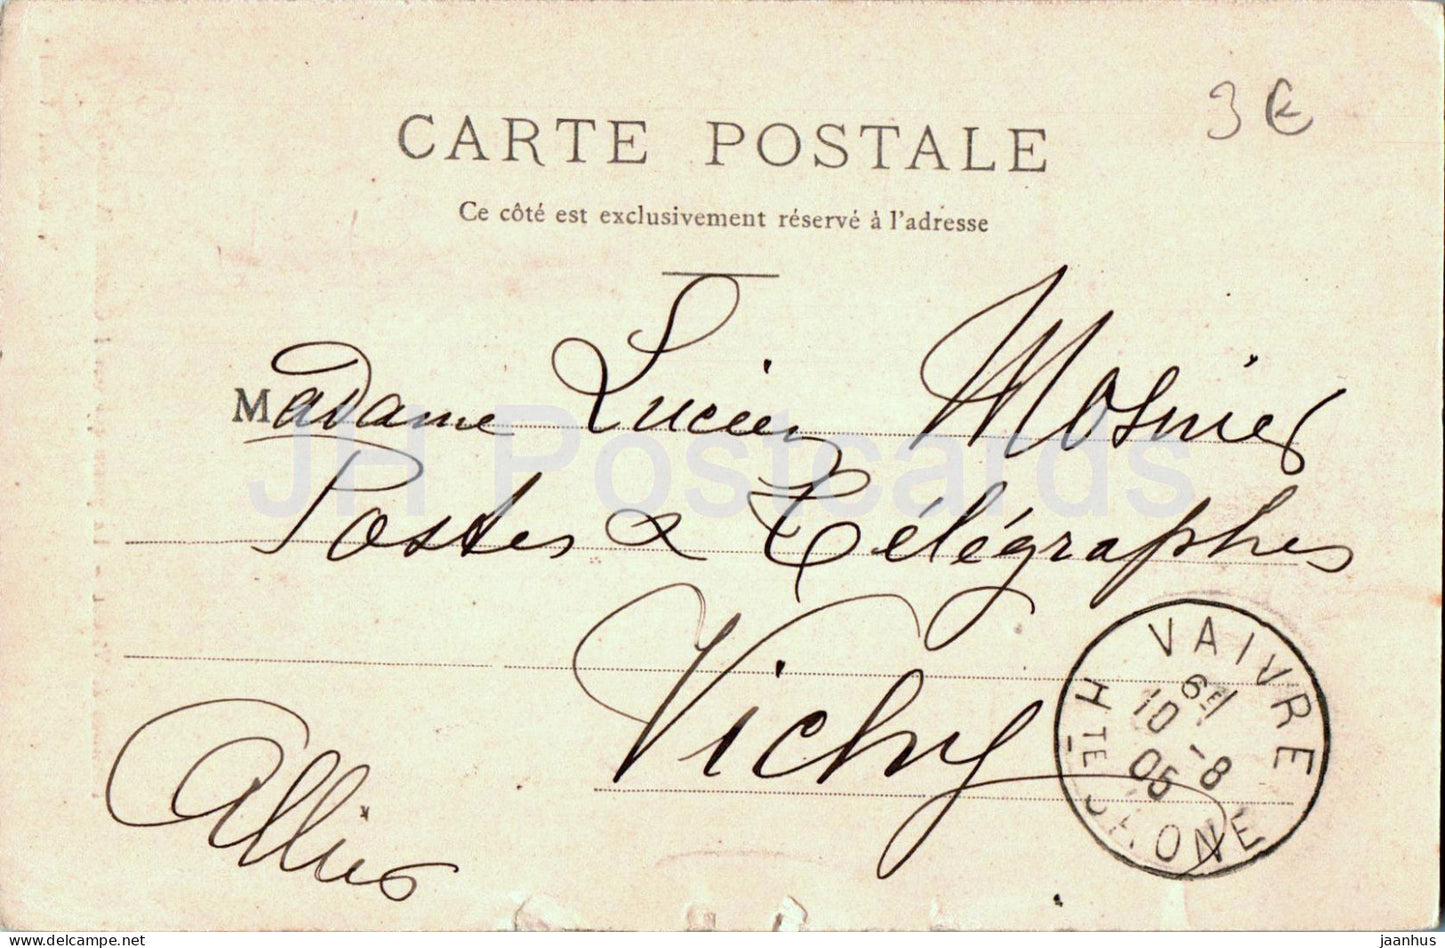 3 €
CARTE POSTALE
Ce côté est exclusivement réservé à l'adresse
Madame Lucien Mosnier
Postes & Télégraphes
Vichy
Allier
VAIVRE
6E
10 -8
05
HTE SAONE
JH Postcards
jaanhus @ delcampe.net